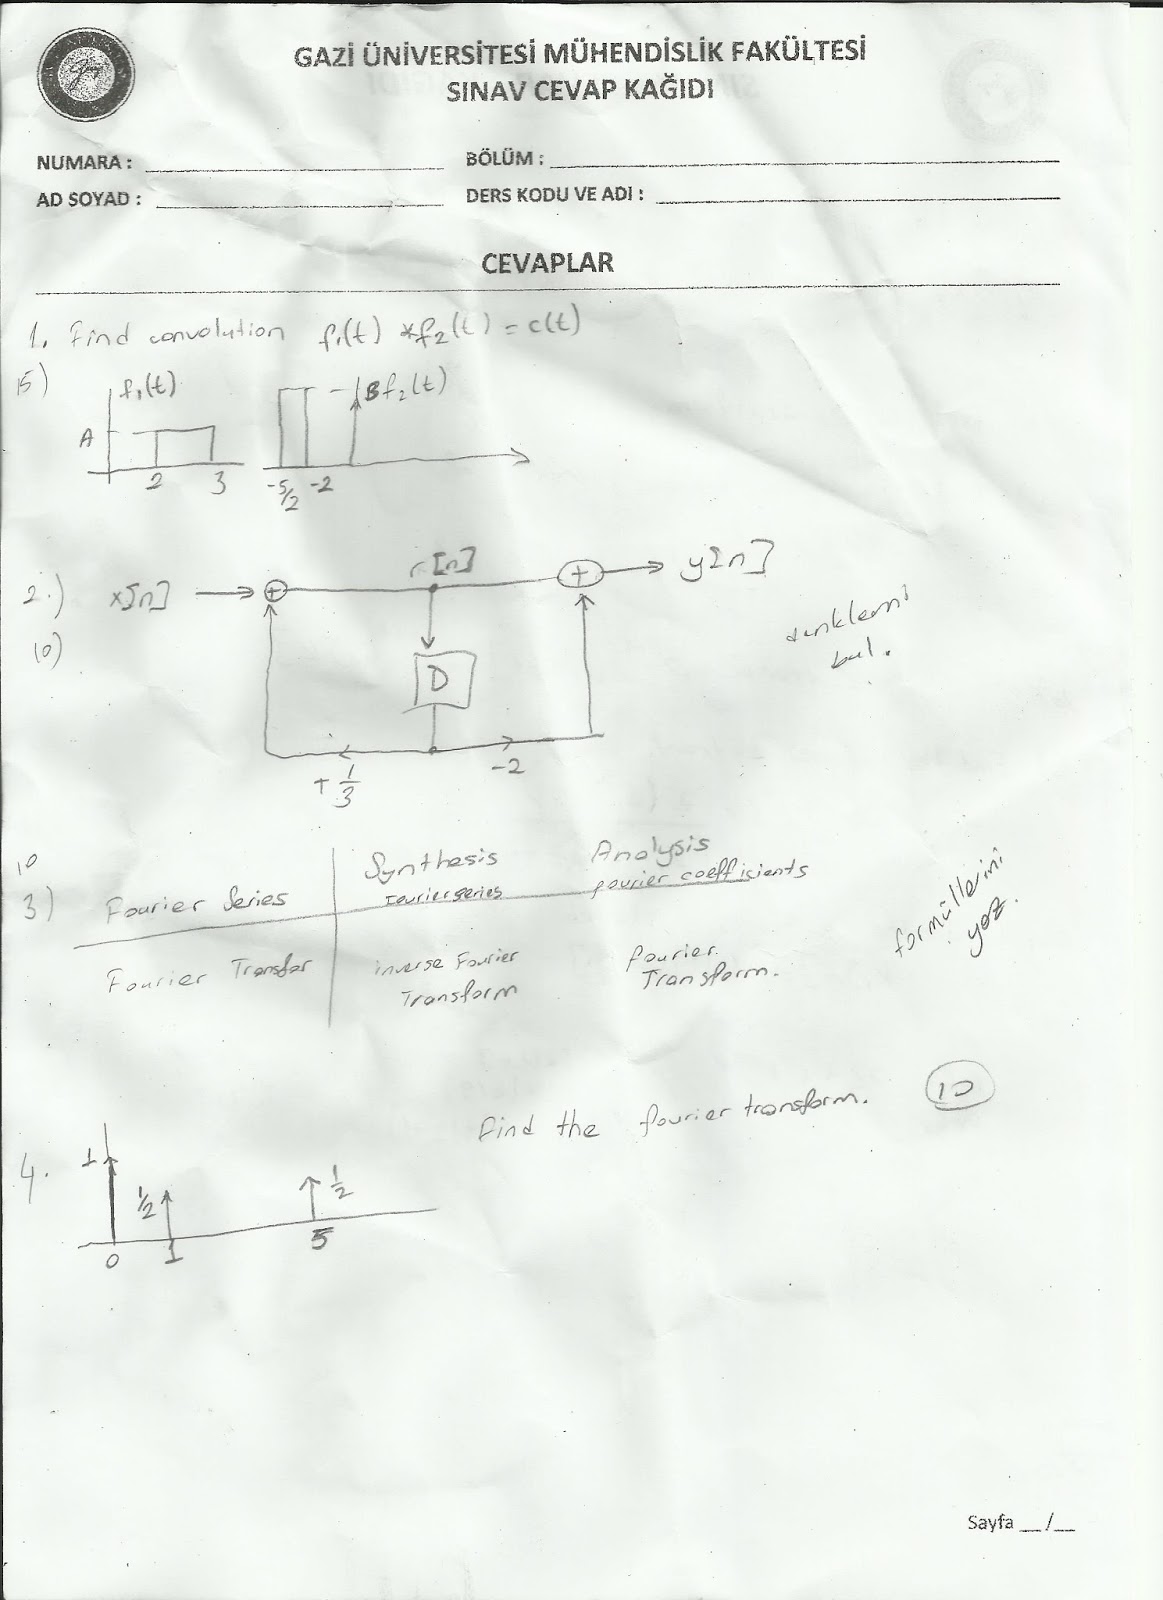 GAZİ ÜNİVERSİTESİ MÜHENDİSLİK FAKÜLTESİ
SINAV CEVAP KAĞIDI
NUMARA :
BÖLÜM :
AD SOYAD :
DERS KODU VE ADI :
CEVAPLAR
1. Find convolution f₁(t) * f₂(t) = c(t)
15)
f₁(t)
A
2
3
B f₂(t)
-5/2
-2
2.)
10)
x[n]
r[n]
y[n]
D
+ 1/3
-2
denklemi
bul.
10
3)
Synthesis
Analysis
Fourier Series
Fourier series
Fourier coefficients
Fourier Transfor
inverse Fourier
Transform
Fourier
Transform.
formüllerini
yaz.
4.
Find the fourier transform.
10
1
1/2
1/2
0
1
5
Sayfa __/__